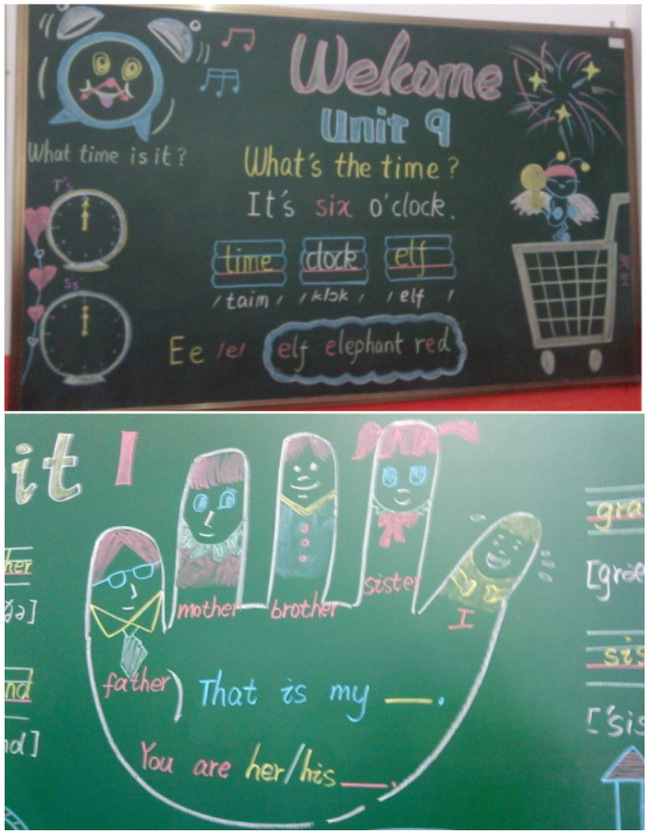 Welcome
Unit 9
What time is it?
What's the time?
T's
It's six o'clock.
time clock elf
/taim/ /klɔk/ /elf/
Ss'
Ee /e/ elf elephant red
it 1
her
gra
ðə]
[græ
mother brother sister I
nd
father
sis
That is my __.
nd]
['sis
You are her/his __.